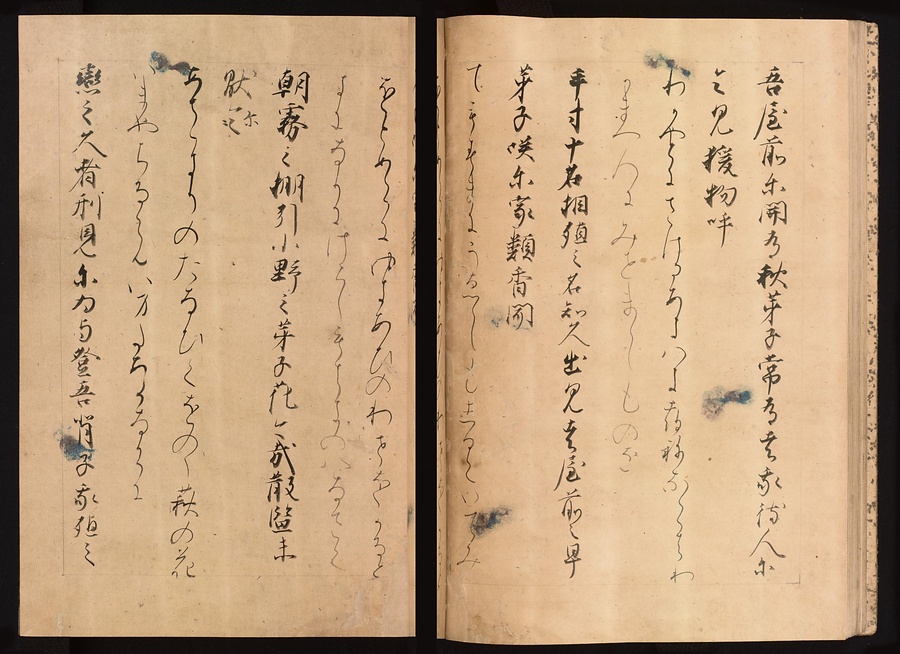 吾屋前尓開有秋芽子常有者我待人尓
令見援物呼
わかやとにさけるあきはきつねならはわ
かまつ人にみせましものを
手寸十名相殖之名知久出見者屋前之早
芽子咲尓家類香聞
てもすまにうゑしもしるくいてみ
をとめらにゆきあひのわせをかると
きになりにけらしはきのはなさく
朝霧之棚引小野之芽子花今哉散濫未
猒尓
あさきりのたなひくをのゝ萩の花
いまやちるらんいまたあかなくに
戀之久者形見尓為与登吾背子我殖之